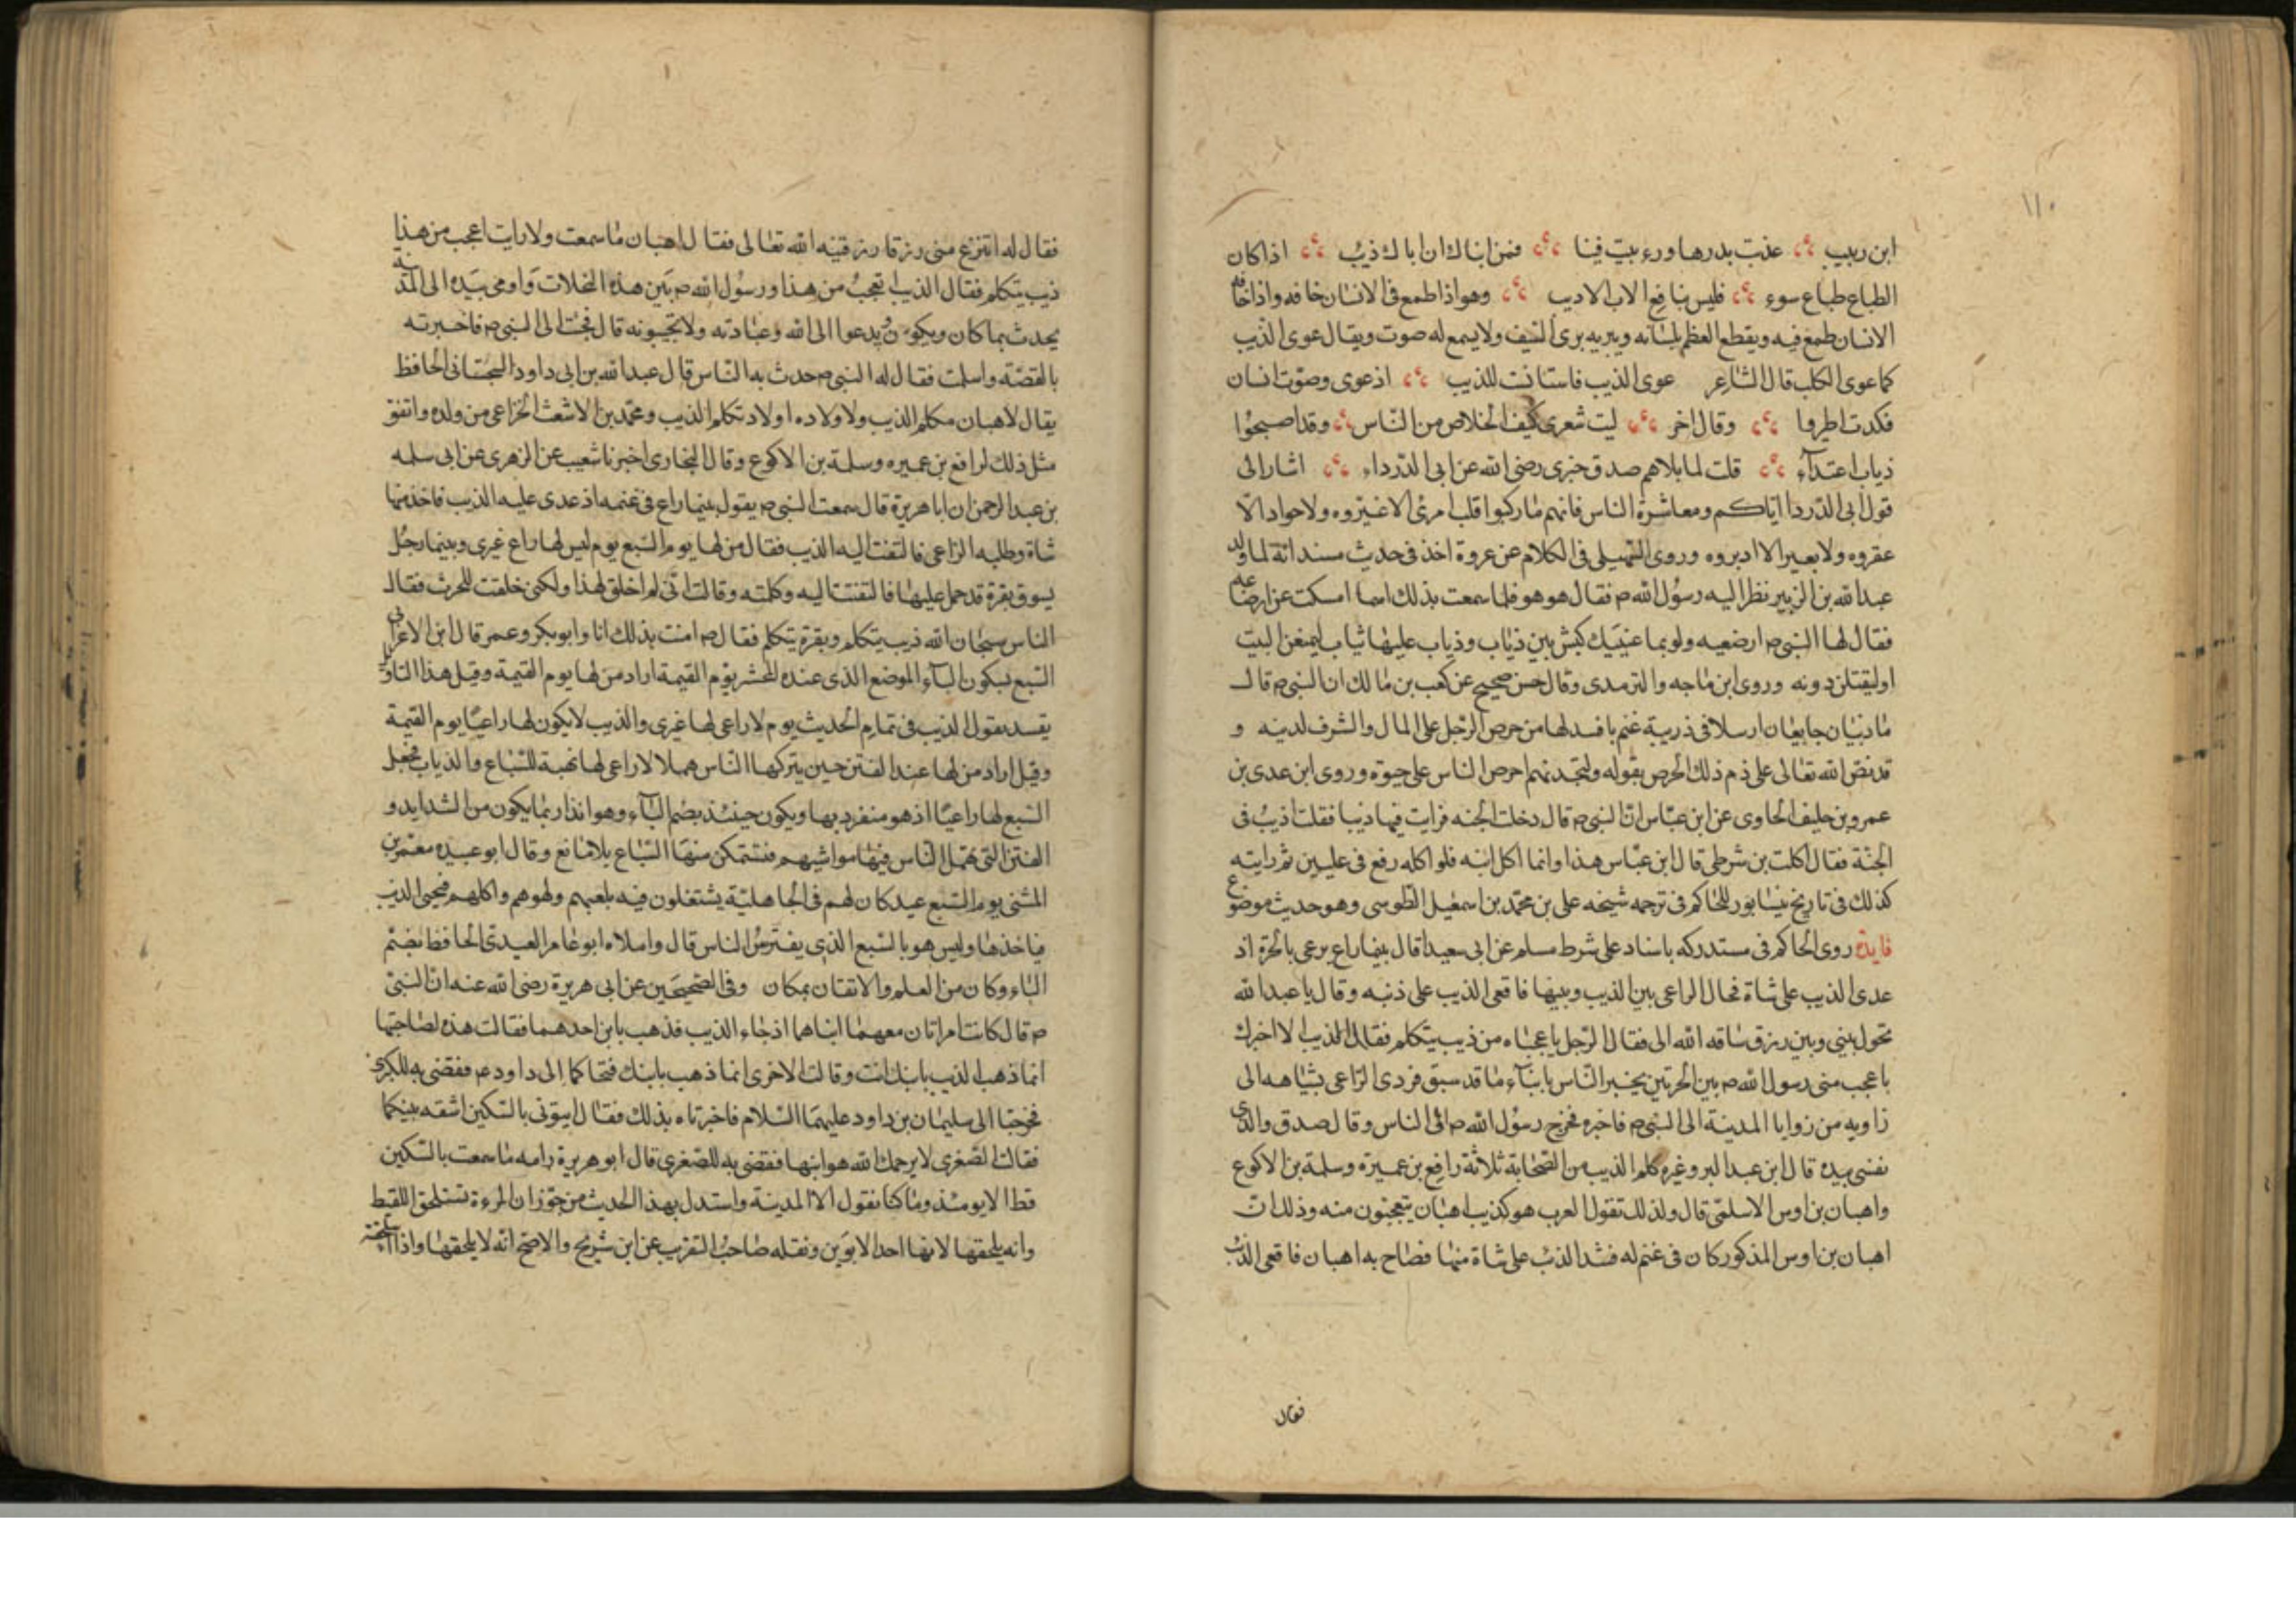 ١١٠
ابن ربيب عذت بدرها وربيت فينا فمن انباك ان اباك ذيب اذا كان
الطباع طباع سوء فليس بنافع الاب الاديب وهو اذا طمع فى الانسان خافه واذا خافه
الانسان طمع فيه ويقطع العظم بلسانه ويبريه برى السيف ولا يسمع له صوت ويقال عوى الذيب
كما عوى الكلب قال الشاعر عوى الذيب فاستانست للذيب اذ عوى وصوت انسان
فكدت اطير وقال اخر ليت شعرى كيف الخلاص من الناس وقد اصبحوا
ذياب اعتدآء قلت لما بلاهم صدق خبرى رضى الله عن ابى الدرداء اشار الى
قول ابى الدردا اياكم ومعاشرة الناس فانهم ما ركبوا قلب امرئ الا غيروه ولا جوادا الا
عقروه ولا بعيرا الا ادبروه وروى السهيلى فى الكلام عن عروة اخذ فى حديث مسند انه لما ولد
عبد الله بن الزبير نظر اليه رسول الله ص فقال هو هو فلما سمعت بذلك اسما امسكت عن ارضاعه
فقال لها النبى ص ارضعيه ولو بما عينيك كبش بين ذياب وذياب عليها ثياب ليمنعن البيت
او ليقتلن دونه وروى ابن ماجه والترمدى وقال حسن صحيح عن كعب بن مالك ان النبى ص قال
ما ذيبان جايعان ارسلا فى ذريبة غنم بافسد لها من حرص الرجل على المال والشرف لدينه و
قد نص الله تعالى على ذم ذلك الحرص بقوله ولتجدنهم احرص الناس على حيوة وروى ابن عدى بن
عمرو بن خليف الحاوى عن ابن عباس ان النبى ص قال دخلت الجنه فرايت فيها ذيبا فقلت اذيب فى
الجنة فقال اكلت بن شرطى قال ابن عباس هذا وانما اكل ابنه فلو اكله رفع فى عليين ثم رايته
كذلك فى تاريخ نيسابور للحاكم فى ترجمه شيخه على بن محمد بن اسمعيل الطوسى وهو حديث موضوع
فايدة روى الحاكم فى مستدركه باسناد على شرط مسلم عن ابى سعيد قال بينما راع يرعى بالحرة اذ
عدى الذيب على شاة فحال الراعى بين الذيب وبينها فاقعى الذيب على ذنبه وقال يا عبد الله
تحول بينى وبين رزق ساقه الله الى فقال الرجل يا عجباه من ذيب يتكلم فقال الذيب الا اخبرك
باعجب منى رسول الله ص بين الحرتين يخبر الناس بانبآء ما قد سبق فزدى الراعى بشياهه الى
زاويه من زوايا المدينة الى النبى ص فاخبره فخرج رسول الله ص الى الناس وقال صدق والذى
نفسى بيده قال ابن عبد البر وغيره كلم الذيب من الصحابة ثلاثة رافع بن عميرة وسلمة بن الاكوع
واهبان بن اوس الاسلمى قال ولذلك تقول العرب هو كذيب اهبان يتعجبون منه وذلك ان
اهبان بن اوس المذكور كان فى غنم له فشد الذئب على شاة منها فصاح به اهبان فاقعى الذئب
فقال
فقال له اتنزع منى رزقا رزقنيه الله تعالى فقال اهبان ما سمعت ولا رايت اعجب من هذا
ذيب يتكلم فقال الذيب اتعجب من هذا ورسول الله ص بين هذه النخلات واومى بيده الى المدينة
يحدث بما كان ويكون ويدعوا الى الله وعبادته ولا تجيبونه قال فجئت الى النبى ص فاخبرته
بالقصة واسلمت فقال له النبى ص حدث به الناس قال عبد الله بن ابى داود السجستانى الحافظ
يقال لاهبان مكلم الذيب ولاولاده اولاد تكلم الذيب ومحمد بن الاشعث الخزاعى من ولده واتفق
مثل ذلك لرافع بن عميره وسلمة بن الاكوع وقال البخارى اخبرنا شعيب عن الزهرى عن ابى سلمه
بن عبد الرحمن ان ابا هريرة قال سمعت النبى ص يقول بينما راع فى غنمه اذ عدى عليه الذيب فاخذ منها
شاة وطلبه الراعى فالتفت اليه الذيب فقال من لها يوم السبع يوم ليس لها راع غيرى وبينما رجل
يسوق بقرة قد حمل عليها فالتفتت اليه وكلمته وقالت انى لم اخلق لهذا ولكنى خلقت للحرث فقال
الناس سبحان الله ذيب يتكلم وبقرة يتكلم فقال ص امنت بذلك انا وابو بكر وعمر قال ابن الاعرابى
السبع بسكون البآء الموضع الذى عنده المحشر يوم القيمة اراد من لها يوم القيمة وقيل هذا التاويل
يفسد بقول الذيب فى تمام الحديث يوم لا راعى لها غيرى والذيب لا يكون لها راعيا يوم القيمة
وقيل اراد من لها عند الفتن حين يتركها الناس هملا لا راعى لها نهبة للسباع والذياب فجعل
السبع لها راعيا اذ هو منفرد بها ويكون حينئذ بضم البآء وهو انذار بما يكون من الشدايد و
الفتن التى يهمل الناس فيها مواشيهم فتتمكن منها السباع بلا مانع وقال ابو عبيده معمر بن
المثنى يوم السبع عيد كان لهم فى الجاهلية يشتغلون فيه بلعبهم ولهوهم واكلهم فيجى الذيب
فياخذها وليس هو بالسبع الذى يفترس الناس قال واملاه ابو عامر العبدى الحافظ بضم
الباء وكان من العلم والاتقان بمكان وفى الصحيحين عن ابى هريرة رضى الله عنه ان النبى
ص قال كانت امراتان معهما ابناهما اذ جاء الذيب فذهب بابن احدهما فقالت هذه لصاحبتها
انما ذهب الذيب بابنك انت وقالت الاخرى انما ذهب بابنك فتحاكما الى داود عم فقضى به للكبرى
فخرجتا الى سليمان بن داود عليهما السلام فاخبرتاه بذلك فقال ايتونى بالسكين اشقه بينكما
فقالت الصغرى لا يرحمك الله هو ابنها فقضى به للصغرى قال ابو هريرة رامه ما سمعت بالسكين
قط الا يومئذ وما كنا نقول الا المدينة واستدل بهذا الحديث من جوز ان المرءة تستلحق اللقيط
وانه يلحقها لانها احد الابوين ونقله صاحب التقريب عن ابن شريح والاصح انه لا يلحقها واذا